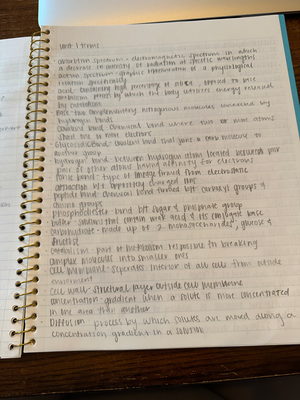 Unit 1 terms
absorption spectrum - electromagnetic spectrum in which
a decrease in intensity of radiation at specific wavelengths
action spectrum - graphic of a physiological
response
acid containing high percentage of opposed to base
process by which the body utilizes energy released
by
base - two complementary nitrogenous molecules connected by
hydrogen bonds
covalent bond - chemical bond where two or more atoms
share one or more electrons
Glycosidic Bond - covalent bond that joins a carb molecule to
another group
hydrogen bond - between hydrogen atom located between pair
pair of other atoms having affinity for electrons
Ionic bond - type of linkage formed from electrostatic
attraction b/w oppositely charged ions
peptide bond - chemical bond formed b/t carboxyl groups &
amino groups
phosphodiester - bond b/t sugar & phosphate group
buffer - solutions that contain weak acid & its conjugate base
carbohydrate - made up of 2 monosaccharides, glucose &
catabolism - part of metabolism responsible to breaking
complex molecules into smaller ones
Cell membrane - seperates interior of all cells from outside
enviroment
Cell wall - structural layer outside cell membrane
concentration - gradient when a solute is more concentrated
in one area than another
Diffusion - process by which solutes are moved along a
concentration gradient in a solution